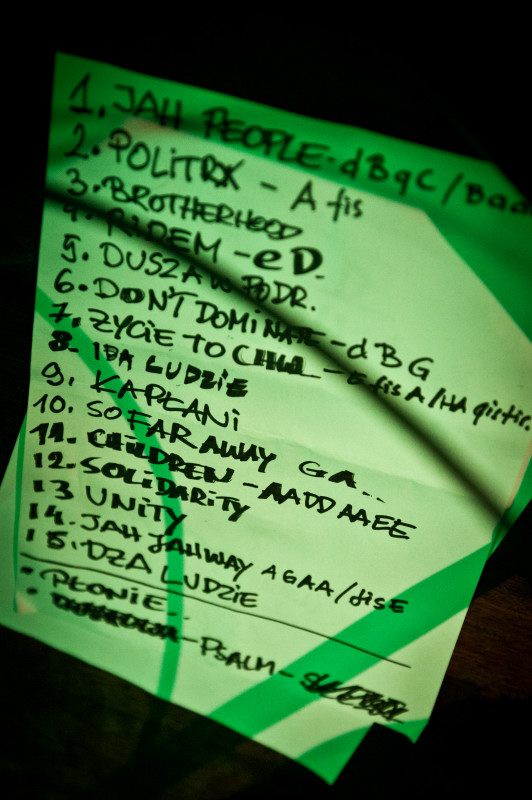 1. JAH PEOPLE - d B g C / Bad
2. POLITRX - A fis
3. BROTHERHOOD
4. RIDEM - e D.
5. DUSZA W PODR.
6. DON'T DOMINATE - d B G
7. ŻYCIE TO - E fis A / HA
8. IDĄ LUDZIE
9. KAPŁANI
10. SO FAR AWAY GA...
11. CHILDREN - AADDAAEE
12. SOLIDARITY
13 UNITY
14. JAH JAHWAY AGAA/fisE
15. DZA LUDZIE
- PŁONIE..
- - PSALM -